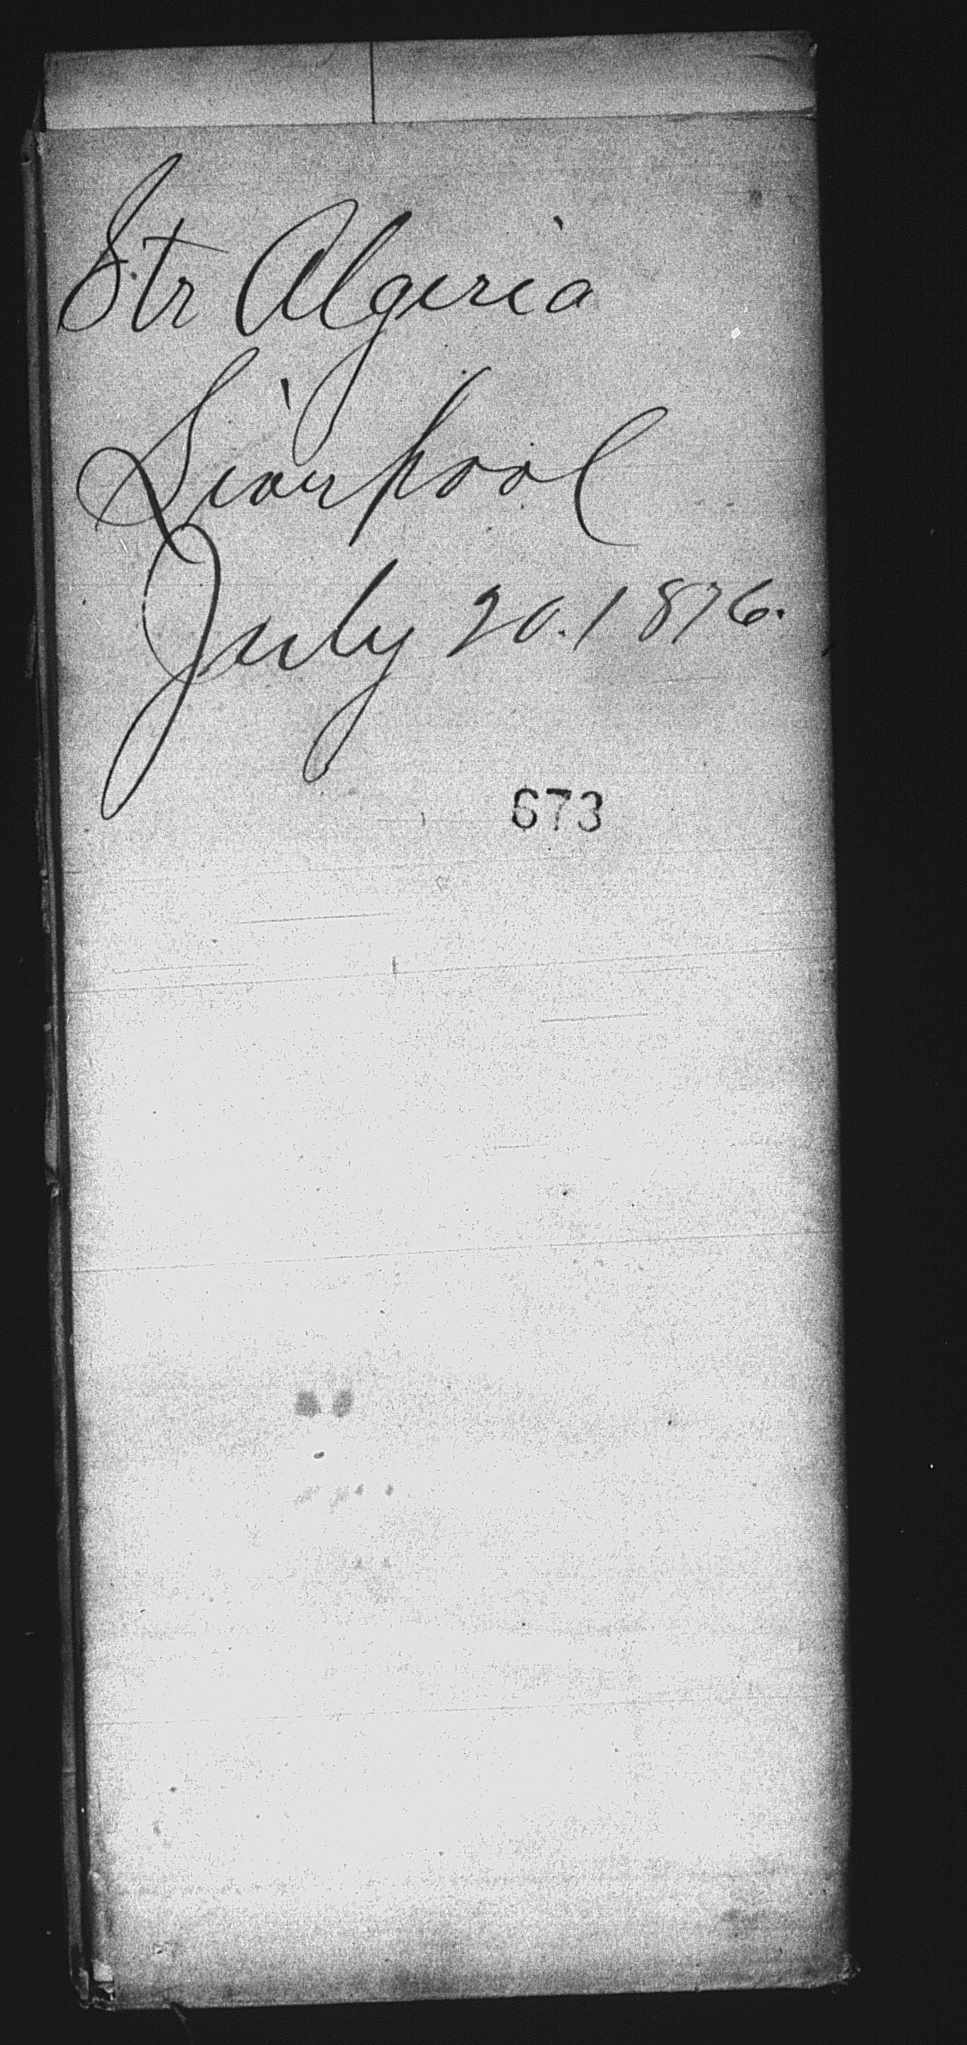 Str Algeria
Liverpool
July 20. 1876.
673